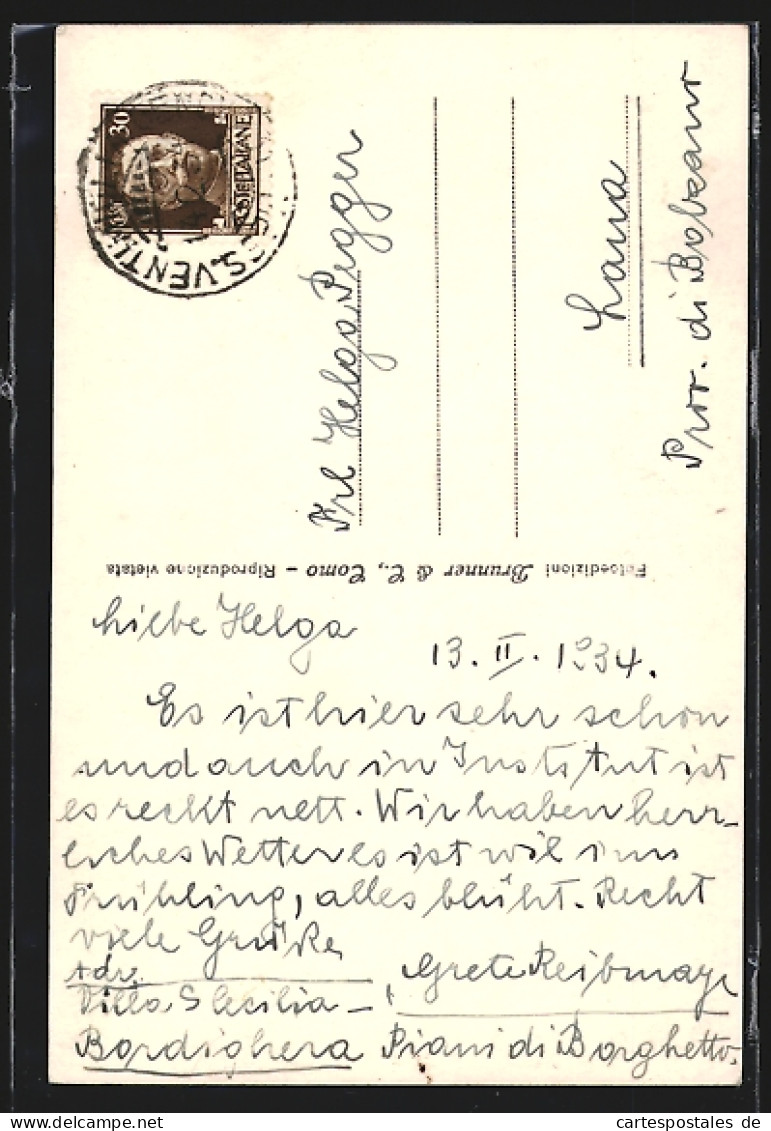 30
POSTE ITALIANE
VENTI
Frl Helga Pegger
Lana
Prov. di Bolzano
Fotoedizioni Brunner & C., Como – Riproduzione vietata
Liebe Helga
13. II. 1934.
Es ist hier sehr schön
und auch in Institut ist
es recht nett. Wir haben herr-
liches Wetter es ist wie im
Frühling, alles blüht. Recht
viele Grüße
Grete Reibmayr
Adr.
Villa S Cecilia –
Bordighera Piani di Borghetto.
cartespostales de